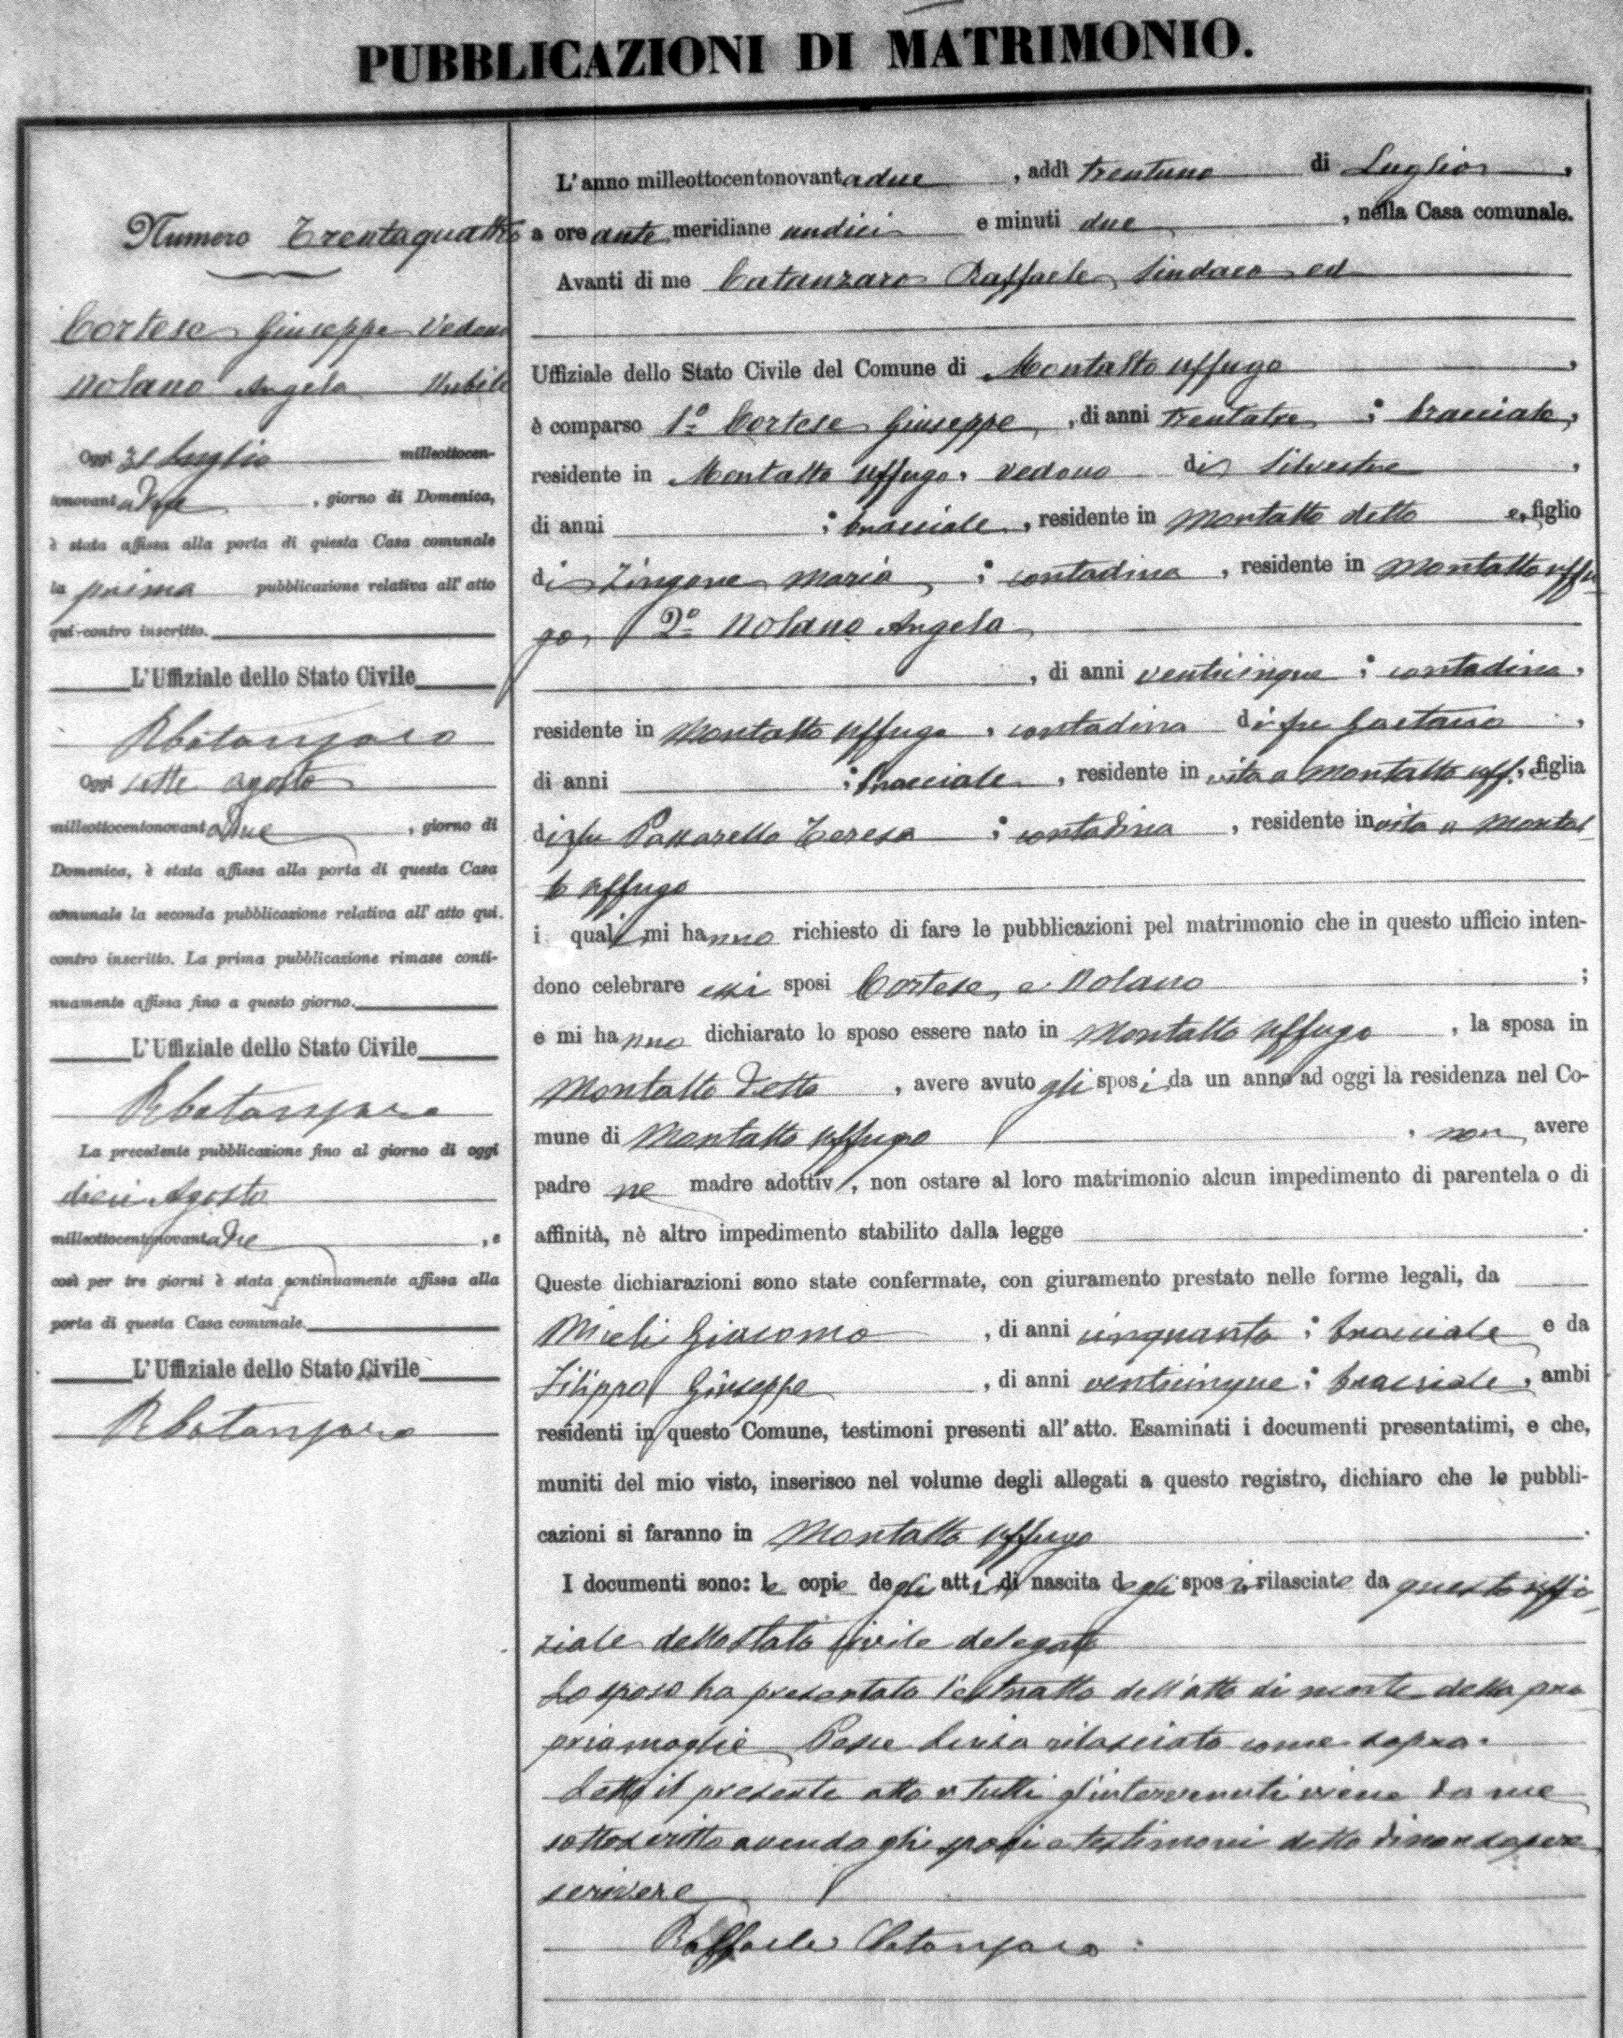 PUBBLICAZIONI DI MATRIMONIO.
Numero Trentaquattro
Cortese Giuseppe Vedovo
Nolano Angela Nubile
Oggi 31 Luglio milleottocen-
tonovantadue, giorno di Domenica,
è stata affissa alla porta di questa Casa comunale
la prima pubblicazione relativa all'atto
qui-contro inscritto.
L'Uffiziale dello Stato Civile
RCatanzaro
Oggi sette agosto
milleottocentonovantadue, giorno di
Domenica, è stata affissa alla porta di questa Casa
comunale la seconda pubblicazione relativa all'atto qui.
contro inscritto. La prima pubblicazione rimase conti-
nuamente affissa fino a questo giorno.
L'Uffiziale dello Stato Civile
RCatanzaro
La precedente pubblicazione fino al giorno di oggi
dieci Agosto
milleottocentonovantadue, e
così per tre giorni è stata continuamente affissa alla
porta di questa Casa comunale.
L'Uffiziale dello Stato Civile
RCatanzaro
L'anno milleottocentonovantadue, addì trentuno di Luglio,
a ore antemeridiane undici e minuti due, nella Casa comunale.
Avanti di me Catanzaro Raffaele Sindaco ed
Uffiziale dello Stato Civile del Comune di Montalto Uffugo,
è comparso 1º Cortese Giuseppe, di anni trentatre; bracciale,
residente in Montalto Uffugo, vedovo di Silvestre,
di anni ; bracciale, residente in Montalto detto e, figlio
di Zingone Maria; contadina, residente in Montalto Uffu-
go, 2º Nolano Angela
, di anni venticinque; contadina,
residente in Montalto Uffugo, contadina di fu Gaetano,
di anni ; bracciale, residente in vita a Montalto Uff., figlia
di fu Passarello Teresa; contadina, residente in vita a Montal
to Uffugo
i quali mi hanno richiesto di fare le pubblicazioni pel matrimonio che in questo ufficio inten-
dono celebrare essi sposi Cortese, e Nolano;
e mi hanno dichiarato lo sposo essere nato in Montalto Uffugo, la sposa in
Montalto detto, avere avuto gli sposi da un anno ad oggi la residenza nel Co-
mune di Montalto Uffugo, non avere
padre ne madre adottiv, non ostare al loro matrimonio alcun impedimento di parentela o di
affinità, nè altro impedimento stabilito dalla legge.
Queste dichiarazioni sono state confermate, con giuramento prestato nelle forme legali, da
Mieli Giacomo, di anni cinquanta; bracciale e da
Filippo Giuseppe, di anni venticinque; bracciale, ambi
residenti in questo Comune, testimoni presenti all'atto. Esaminati i documenti presentatimi, e che,
muniti del mio visto, inserisco nel volume degli allegati a questo registro, dichiaro che le pubbli-
cazioni si faranno in Montalto Uffugo.
I documenti sono: le copie degli atti di nascita degli sposi rilasciate da questo uffi-
ziale dello Stato Civile delegato
Lo sposo ha presentato l'estratto dell'atto di morte della pro
pria moglie Pesce Luisa rilasciato come sopra.
Letto il presente atto a tutti gl'intervenuti viene da me
sottoscritto avendo gli sposi e testimoni detto di non sapere
scrivere
Raffaele Catanzaro